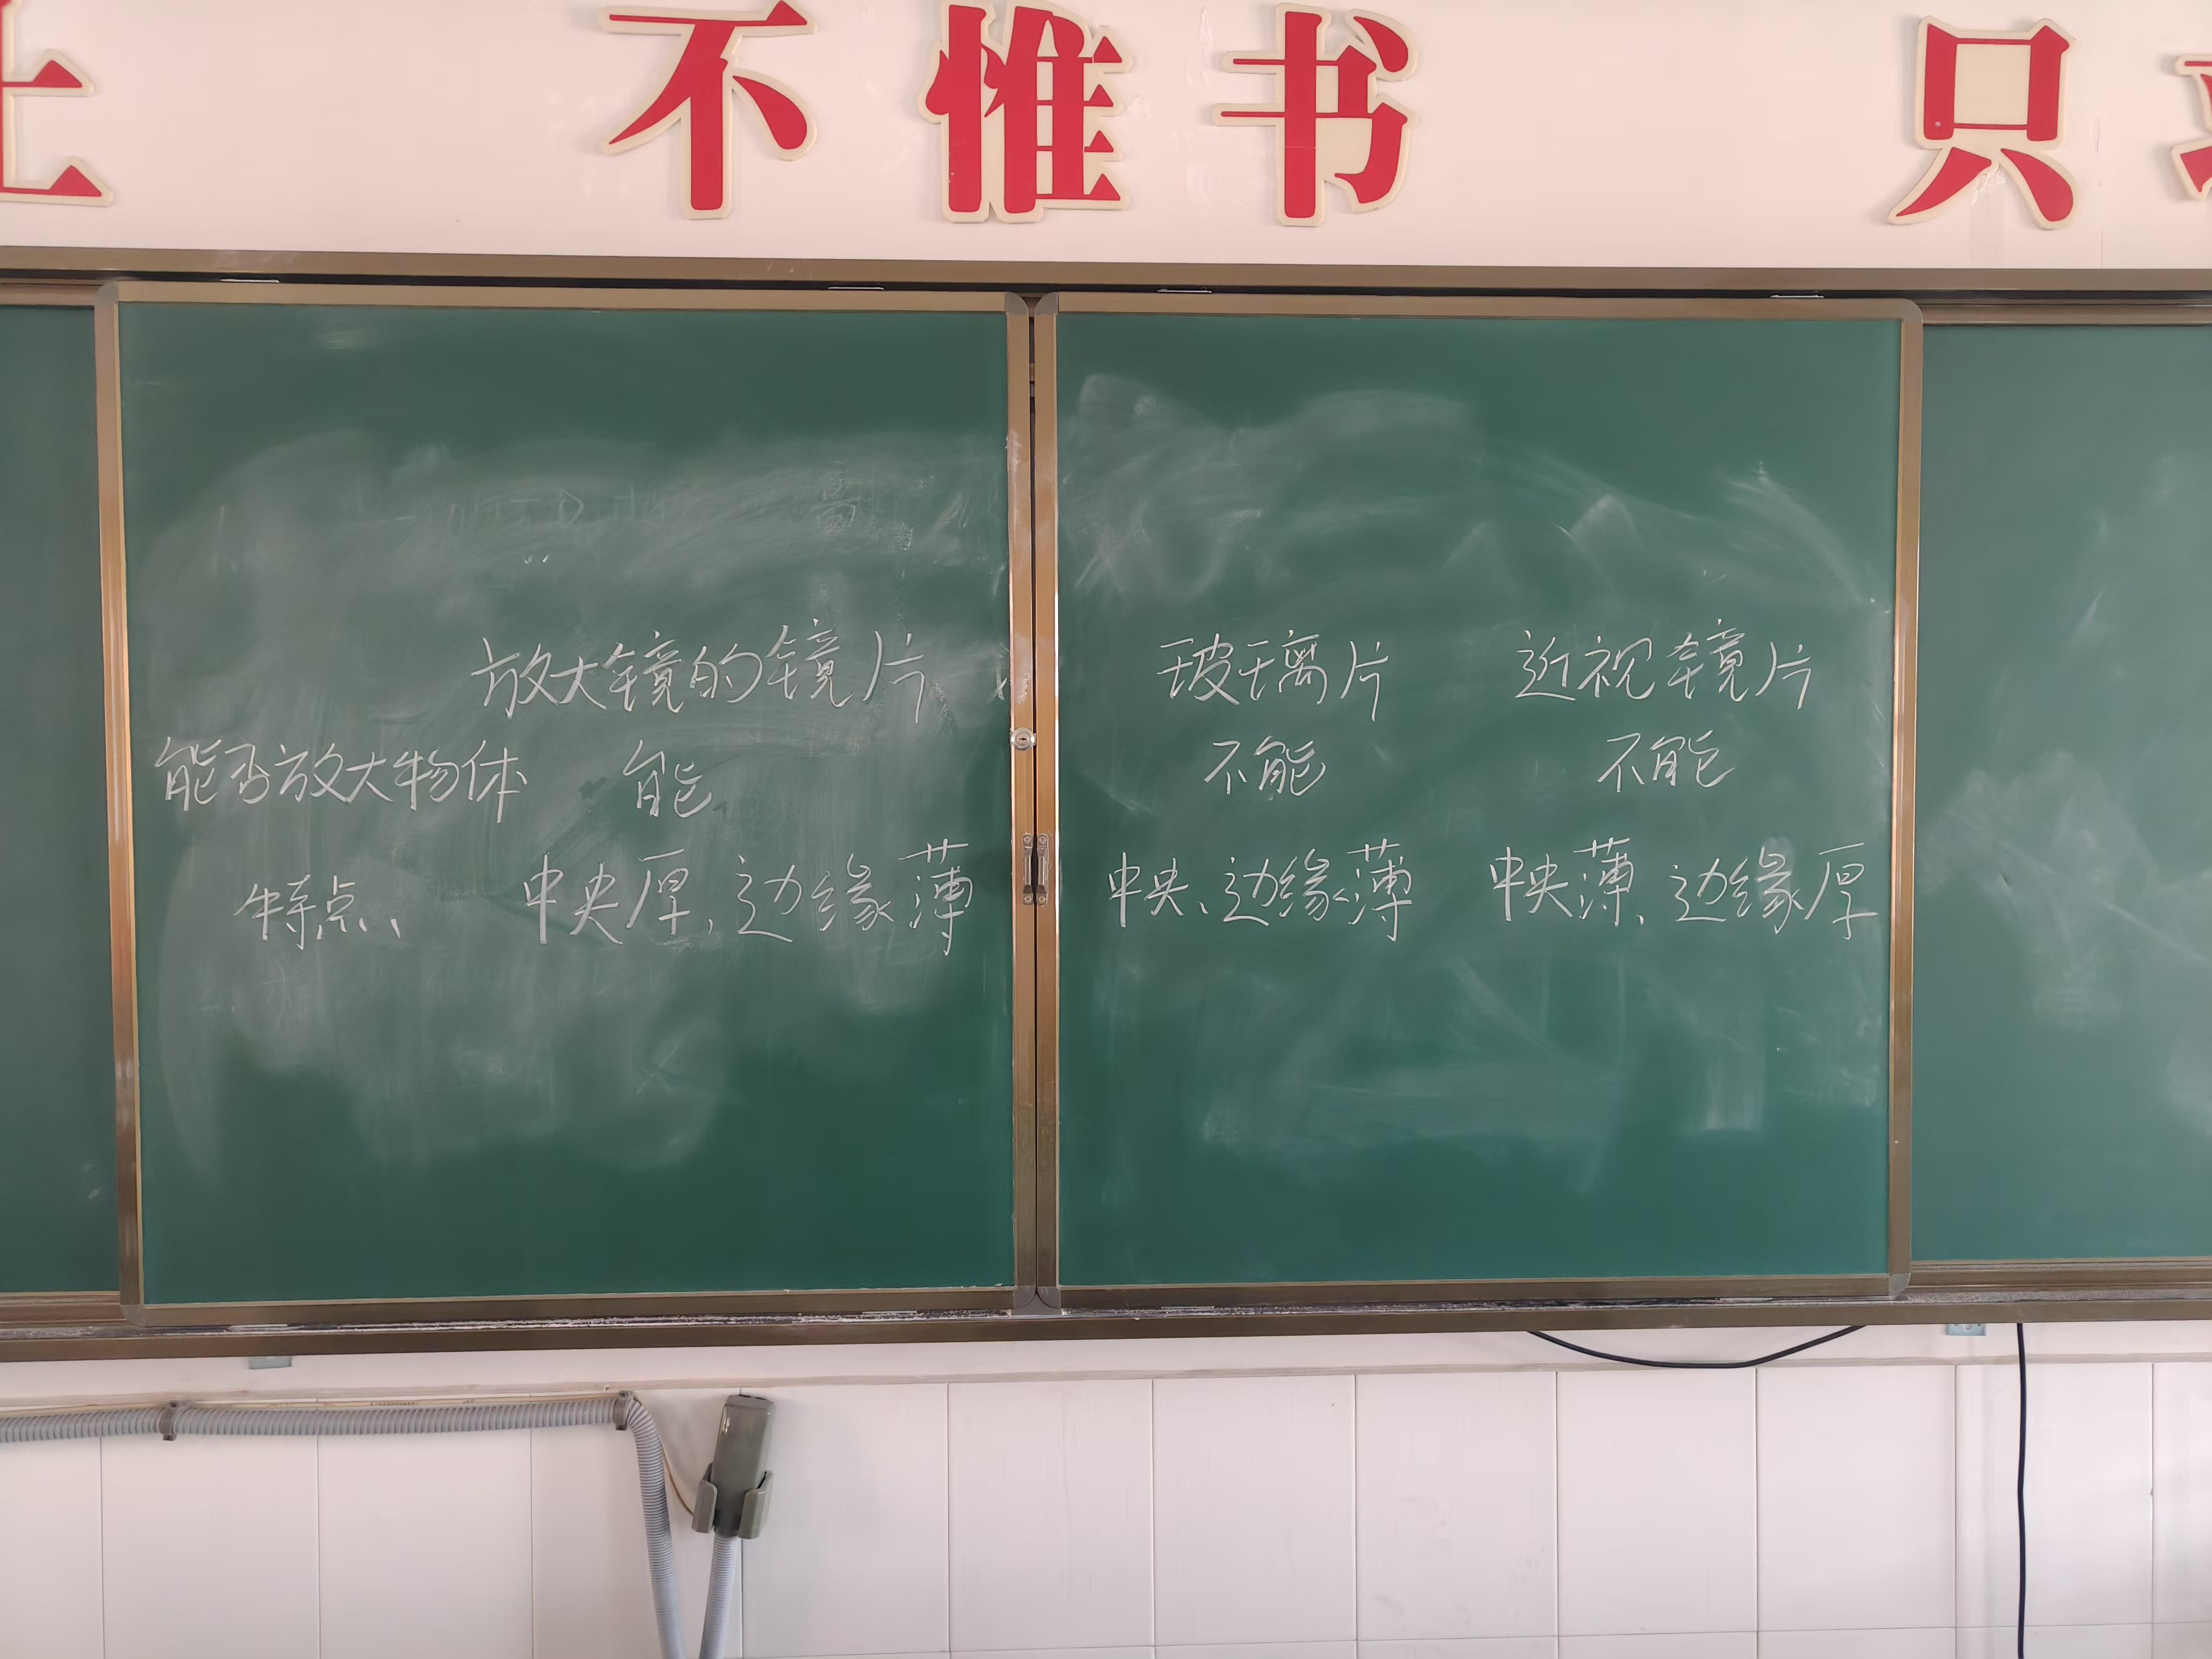 上 不惟书 只
放大镜的镜片 玻璃片 近视镜片
能否放大物体 能 不能 不能
特点、 中央厚、边缘薄 中央、边缘薄 中央薄、边缘厚